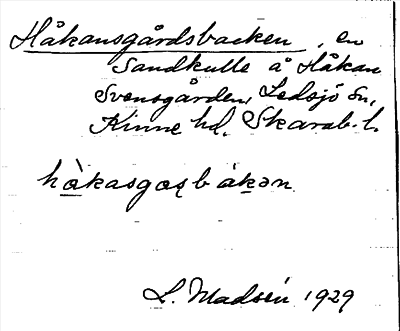 Håkansgårdsbacken, en
Sandkulle å Håkan
Svensgården, Ledsjö sn,
Kinne hd, Skarab. l.
hàkasgaʂbákən
L. Madsén 1929